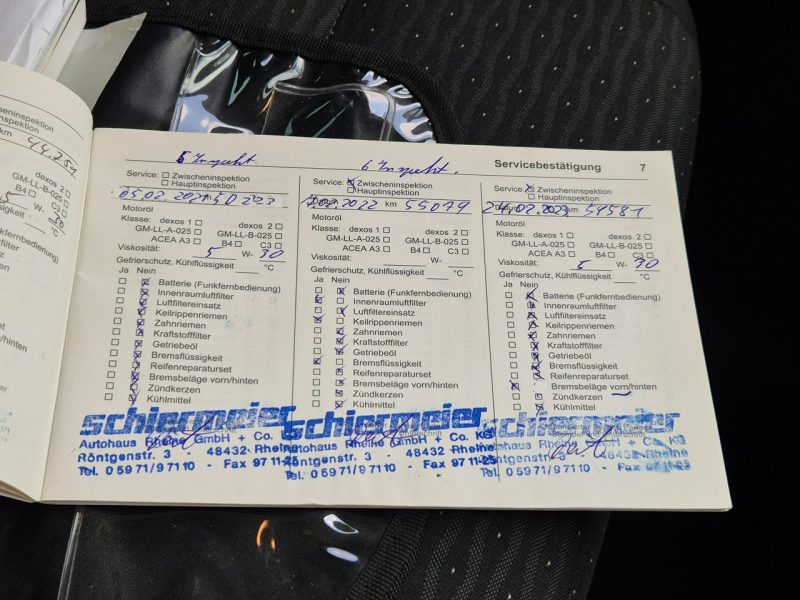 heninspektion
tinspektion
km 44.251
dexos 2 ☐
GM-LL-B-025 ☐
B4 ☐ C3 ☐
5 W- 30
sigkeit °C
dienung)
n/hinten
Servicebestätigung 7
Service: ☐ Zwischeninspektion
☐ Hauptinspektion
05.02.2021 50 223
Motoröl
Klasse: dexos 1 ☐ dexos 2 ☐
GM-LL-A-025 ☐ GM-LL-B-025 ☐
ACEA A3 ☐ B4 ☐ C3 ☐
Viskosität: 5 W- 30
Gefrierschutz, Kühlflüssigkeit °C
Ja Nein
☐ ☒ Batterie (Funkfernbedienung)
☐ ☒ Innenraumluftfilter
☐ ☒ Luftfiltereinsatz
☐ ☒ Keilrippenriemen
☐ ☒ Zahnriemen
☐ ☒ Kraftstofffilter
☐ ☒ Getriebeöl
☐ ☒ Bremsflüssigkeit
☐ ☒ Reifenreparaturset
☐ ☒ Bremsbeläge vorn/hinten
☐ ☒ Zündkerzen
☐ ☒ Kühlmittel
schiermeier
Autohaus Rheine GmbH + Co. KG
Röntgenstr. 3 - 48432 Rheine
Tel. 0 59 71/9 71 10 - Fax 97 11-25
Service: ☒ Zwischeninspektion
☐ Hauptinspektion
2022 km 55079
Motoröl
Klasse: dexos 1 ☐ dexos 2 ☐
GM-LL-A-025 ☐ GM-LL-B-025 ☐
ACEA A3 ☐ B4 ☐ C3 ☐
Viskosität: W-
Gefrierschutz, Kühlflüssigkeit °C
Ja Nein
☐ ☒ Batterie (Funkfernbedienung)
☒ ☐ Innenraumluftfilter
☐ ☒ Luftfiltereinsatz
☒ ☐ Keilrippenriemen
☐ ☒ Zahnriemen
☐ ☒ Kraftstofffilter
☐ ☒ Getriebeöl
☒ ☐ Bremsflüssigkeit
☐ ☒ Reifenreparaturset
☐ ☒ Bremsbeläge vorn/hinten
☐ ☒ Zündkerzen
☐ ☒ Kühlmittel
schiermeier
Autohaus Rheine GmbH + Co. KG
Röntgenstr. 3 - 48432 Rheine
Tel. 0 59 71/9 71 10 - Fax 97 11-25
Service: ☒ Zwischeninspektion
☐ Hauptinspektion
24.02.2023 km 59581
Motoröl
Klasse: dexos 1 ☐ dexos 2 ☐
GM-LL-A-025 ☐ GM-LL-B-025 ☐
ACEA A3 ☐ B4 ☐ C3 ☐
Viskosität: 5 W- 30
Gefrierschutz, Kühlflüssigkeit °C
Ja Nein
☐ ☒ Batterie (Funkfernbedienung)
☐ ☒ Innenraumluftfilter
☐ ☒ Luftfiltereinsatz
☐ ☒ Keilrippenriemen
☐ ☒ Zahnriemen
☐ ☒ Kraftstofffilter
☐ ☒ Getriebeöl
☐ ☒ Bremsflüssigkeit
☐ ☒ Reifenreparaturset
☒ ☐ Bremsbeläge vorn/hinten
☐ ☒ Zündkerzen
☐ ☒ Kühlmittel
schiermeier
Autohaus Rheine GmbH + Co. KG
Röntgenstr. 3 - 48432 Rheine
Tel. 0 59 71/9 71 10 - Fax 97 11-25